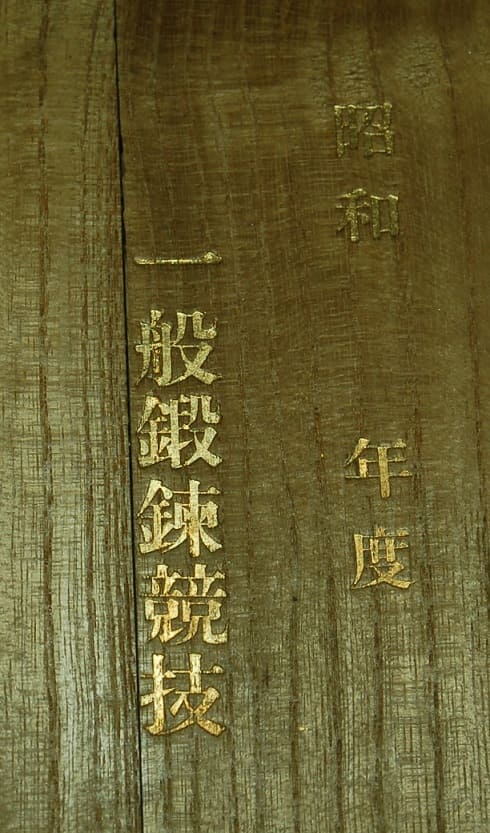 昭和 年度
一般鍛錬競技